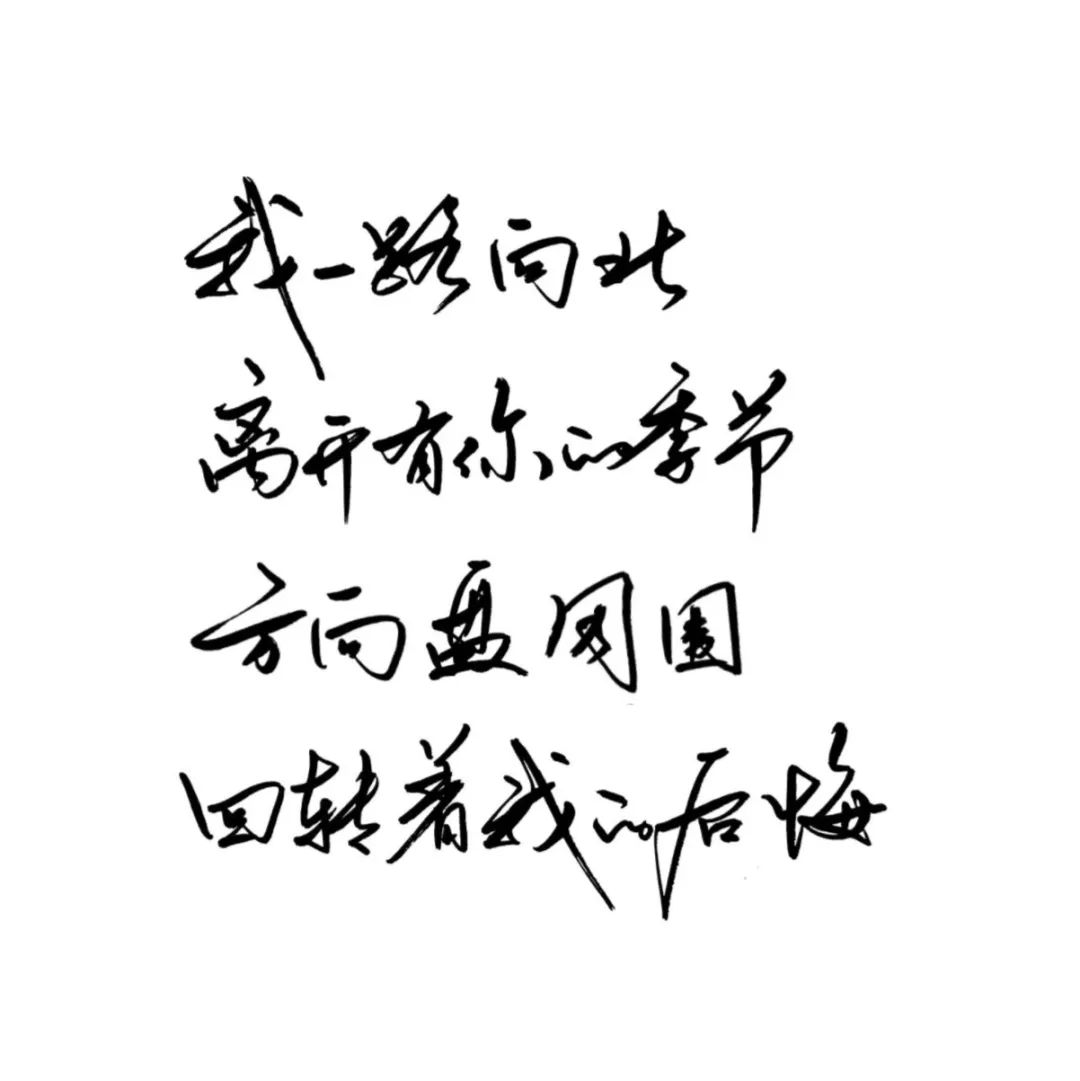 我一路向北
离开有你的季节
方向盘周围
回转着我的后悔